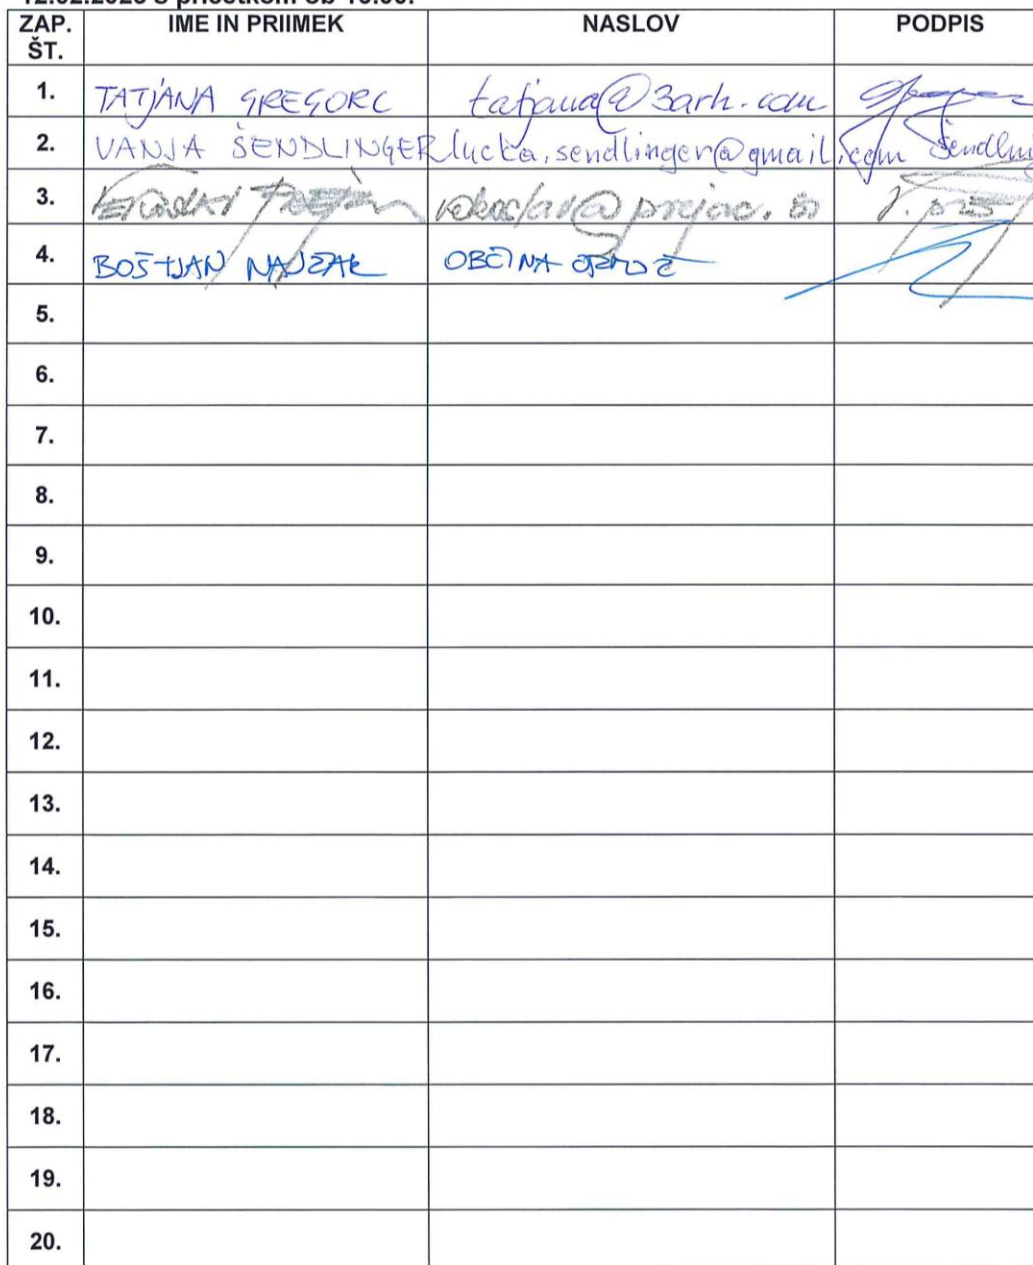 ZAP. ŠT. IME IN PRIIMEK NASLOV PODPIS
1. TATJANA GREGORC tatjana@3arh.com
2. VANJA ŠENDLINGER lucka.sendlinger@gmail.com Šendling
3.
4. BOŠTJAN OBČINA
5.
6.
7.
8.
9.
10.
11.
12.
13.
14.
15.
16.
17.
18.
19.
20.